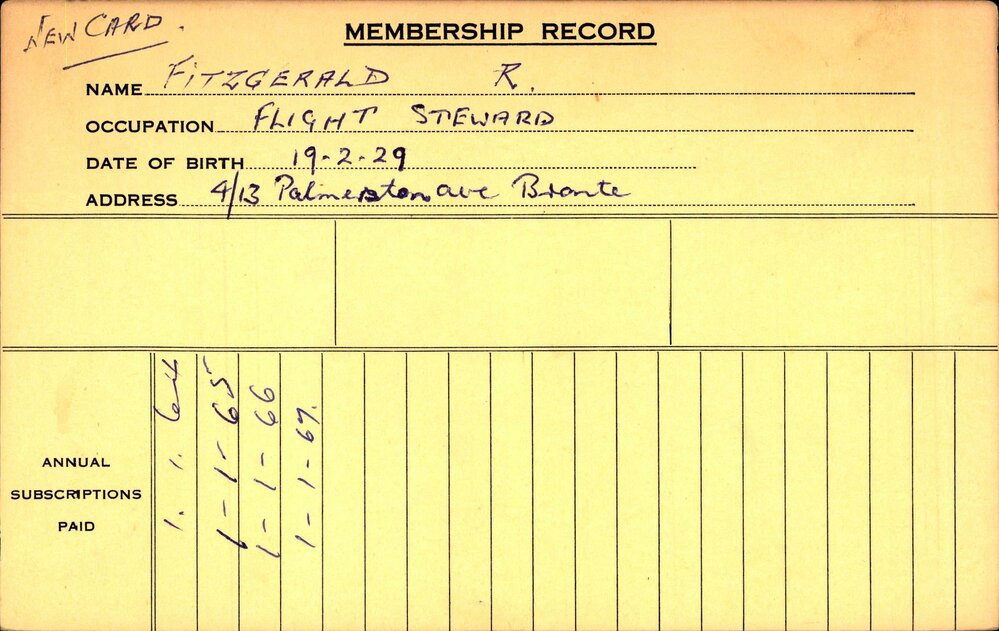 NEW CARD.
MEMBERSHIP RECORD
NAME FITZGERALD R.
OCCUPATION FLIGHT STEWARD
DATE OF BIRTH 19-2-29
ADDRESS 4/13 Palmerston ave Bronte
ANNUAL
SUBSCRIPTIONS
PAID
1. 1. 64
1-1-65
1-1-66
1-1-67.